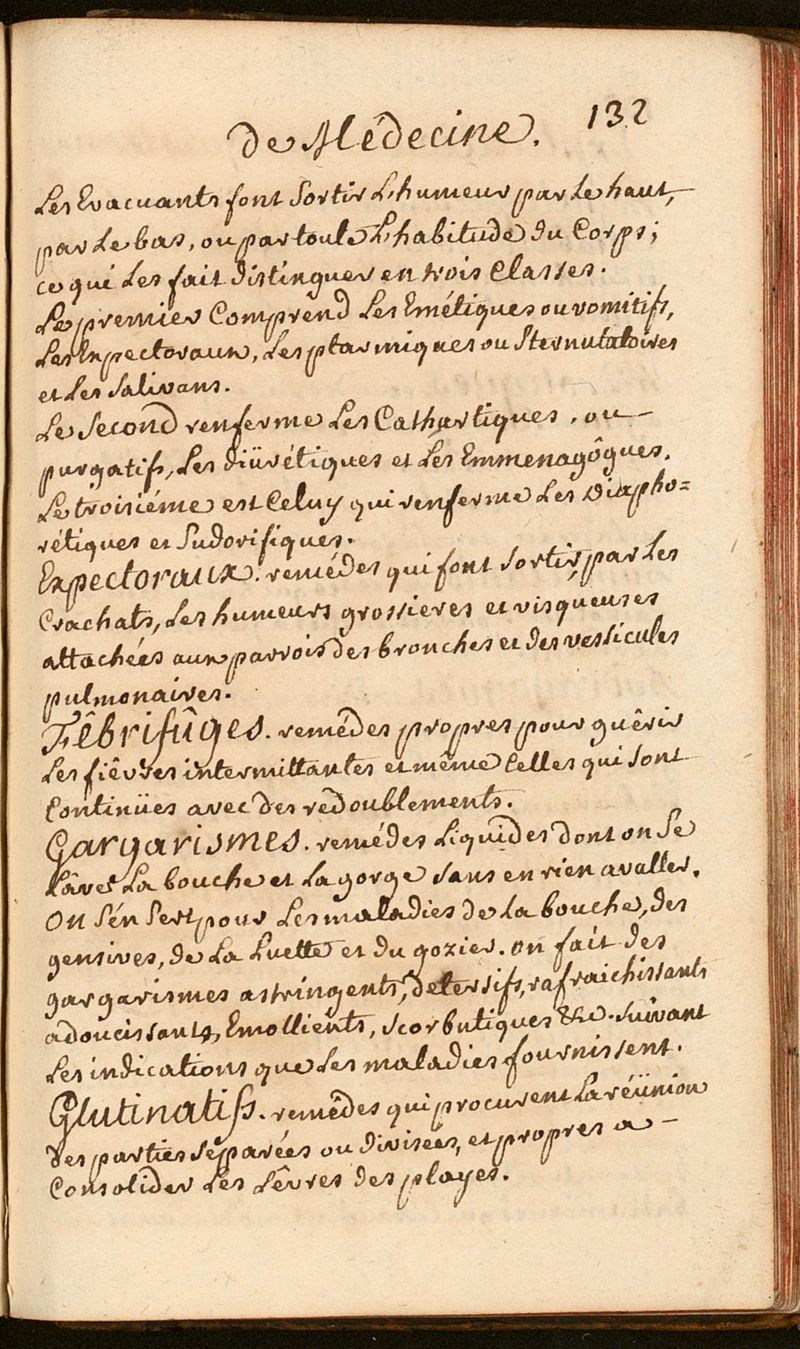 de Médecine. 132
Les Evacuants font Sortir L'humeur par Le haut,
par Le bas, ou par toute L'habitude du Corps;
ce qui Les fait distinguer en trois Classes.
Le premier Comprend Les Emétiques ou vomitifs,
Les Expectoraux, Les ptarmiques ou Sternutatoires
et Les Salivans.
Le Second renferme Les Cathartiques, ou -
purgatifs, Les diürétiques et Les Emmenagôgues.
Le troisiéme est Celuy qui renferme Les Diapho=
rétiques et Sudorifiques.
Expectoraux. remédes qui font sortir, par Les
Crachats, Les humeurs grossieres et visqueuses
attachées aux parrois des bronches et des vessicules
pulmonaires.
Fêbrifûges. remédes propres pour guêrir
Les fiêvres intermittantes et même Celles qui sont
Continües avec des redoublements.
Gargarismes. remédes Liquides dont on Se
Lâve La bouche et La gorge sans en rien avaller.
On S'én Sert pour Les maladies de La bouche, des
gensives, de La Luette et du gozier. on fait des
gargarismes astringents, détersifs, rafraichissants
adoucissants, Emollients, scorbutiques &c. suivant
Les indications que Les maladies fournissent.
Glutinatifs. remêdes qui procurent La réünion
des parties séparées ou divisées, et propres a -
Consolider Les Lêvres des playes.